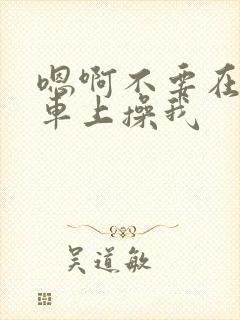 嗯啊不要在
車上操我
吴道敏